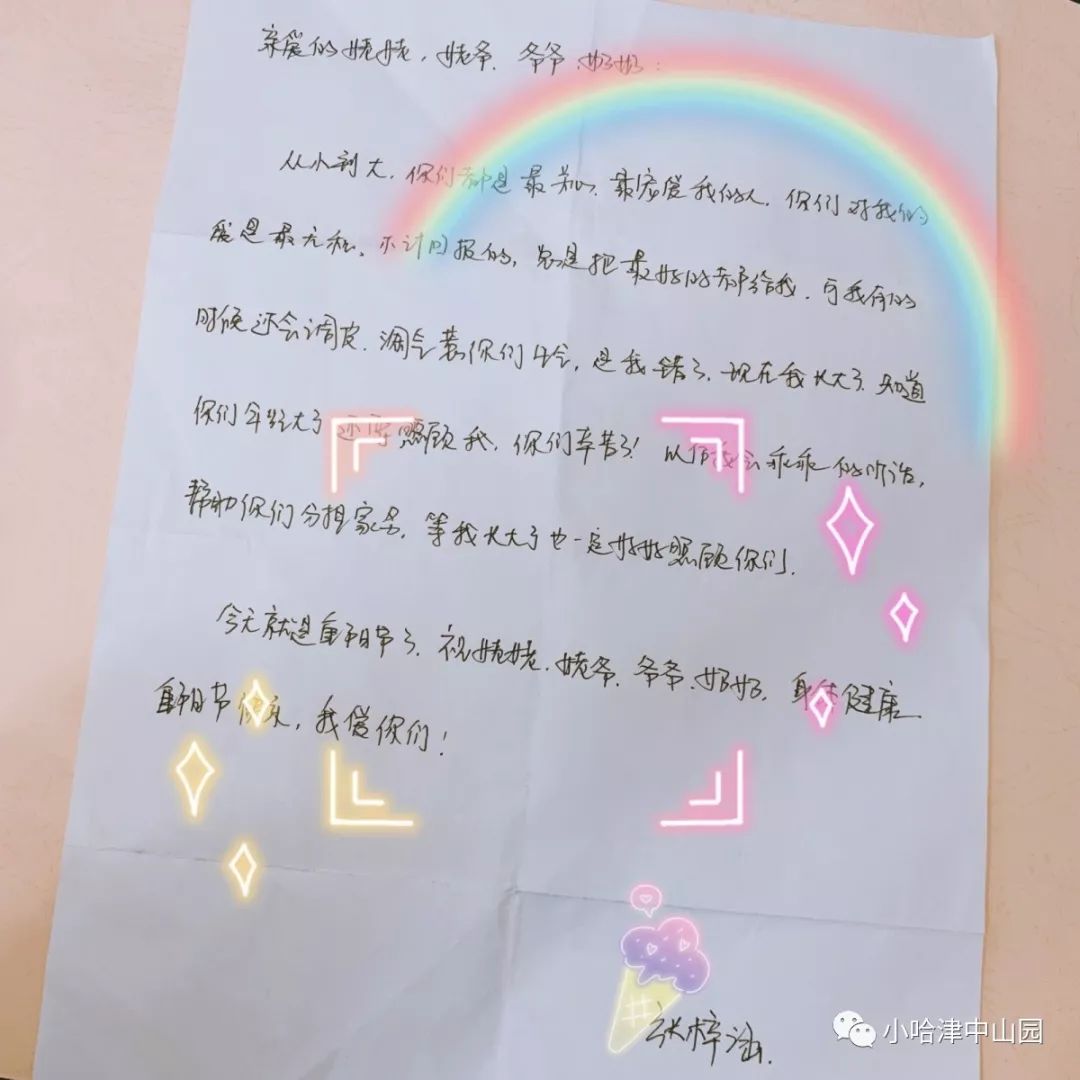 亲爱的姥姥，姥爷、爷爷、奶奶：
从小到大，你们都是最关心、最宠爱我的人，你们对我的
爱是最无私、不计回报的，总是把最好的都给我，可我有的
时候还会调皮、淘气惹你们生气，是我错了，现在我长大了，知道
你们年纪大了还要照顾我，你们辛苦了！以后我会乖乖的听话，
帮助你们分担家务，等我长大了也一定好好照顾你们．
今天就是重阳节了，祝姥姥、姥爷、爷爷、奶奶，身体健康
重阳节快乐，我爱你们！
张梓涵．
小哈津中山园